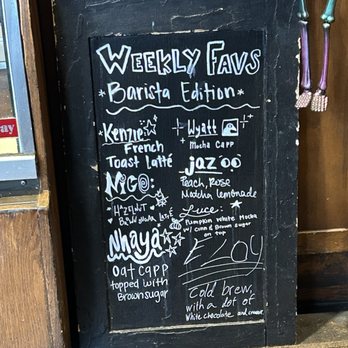 WEEKLY FAVS
*Barista Edition*
Kenzie
French
Toast Latté
Wyatt
Mocha Capp
Nico
Hazelnut
jazoo
Peach, Rose
Matcha lemonade
Luce:
Pumpkin White Mocha
w/ Cinn & Brown Sugar
on top
Nhaya
Oat capp
topped with
Brown sugar
Eloy
Cold brew,
with a lot of
White chocolate and cream